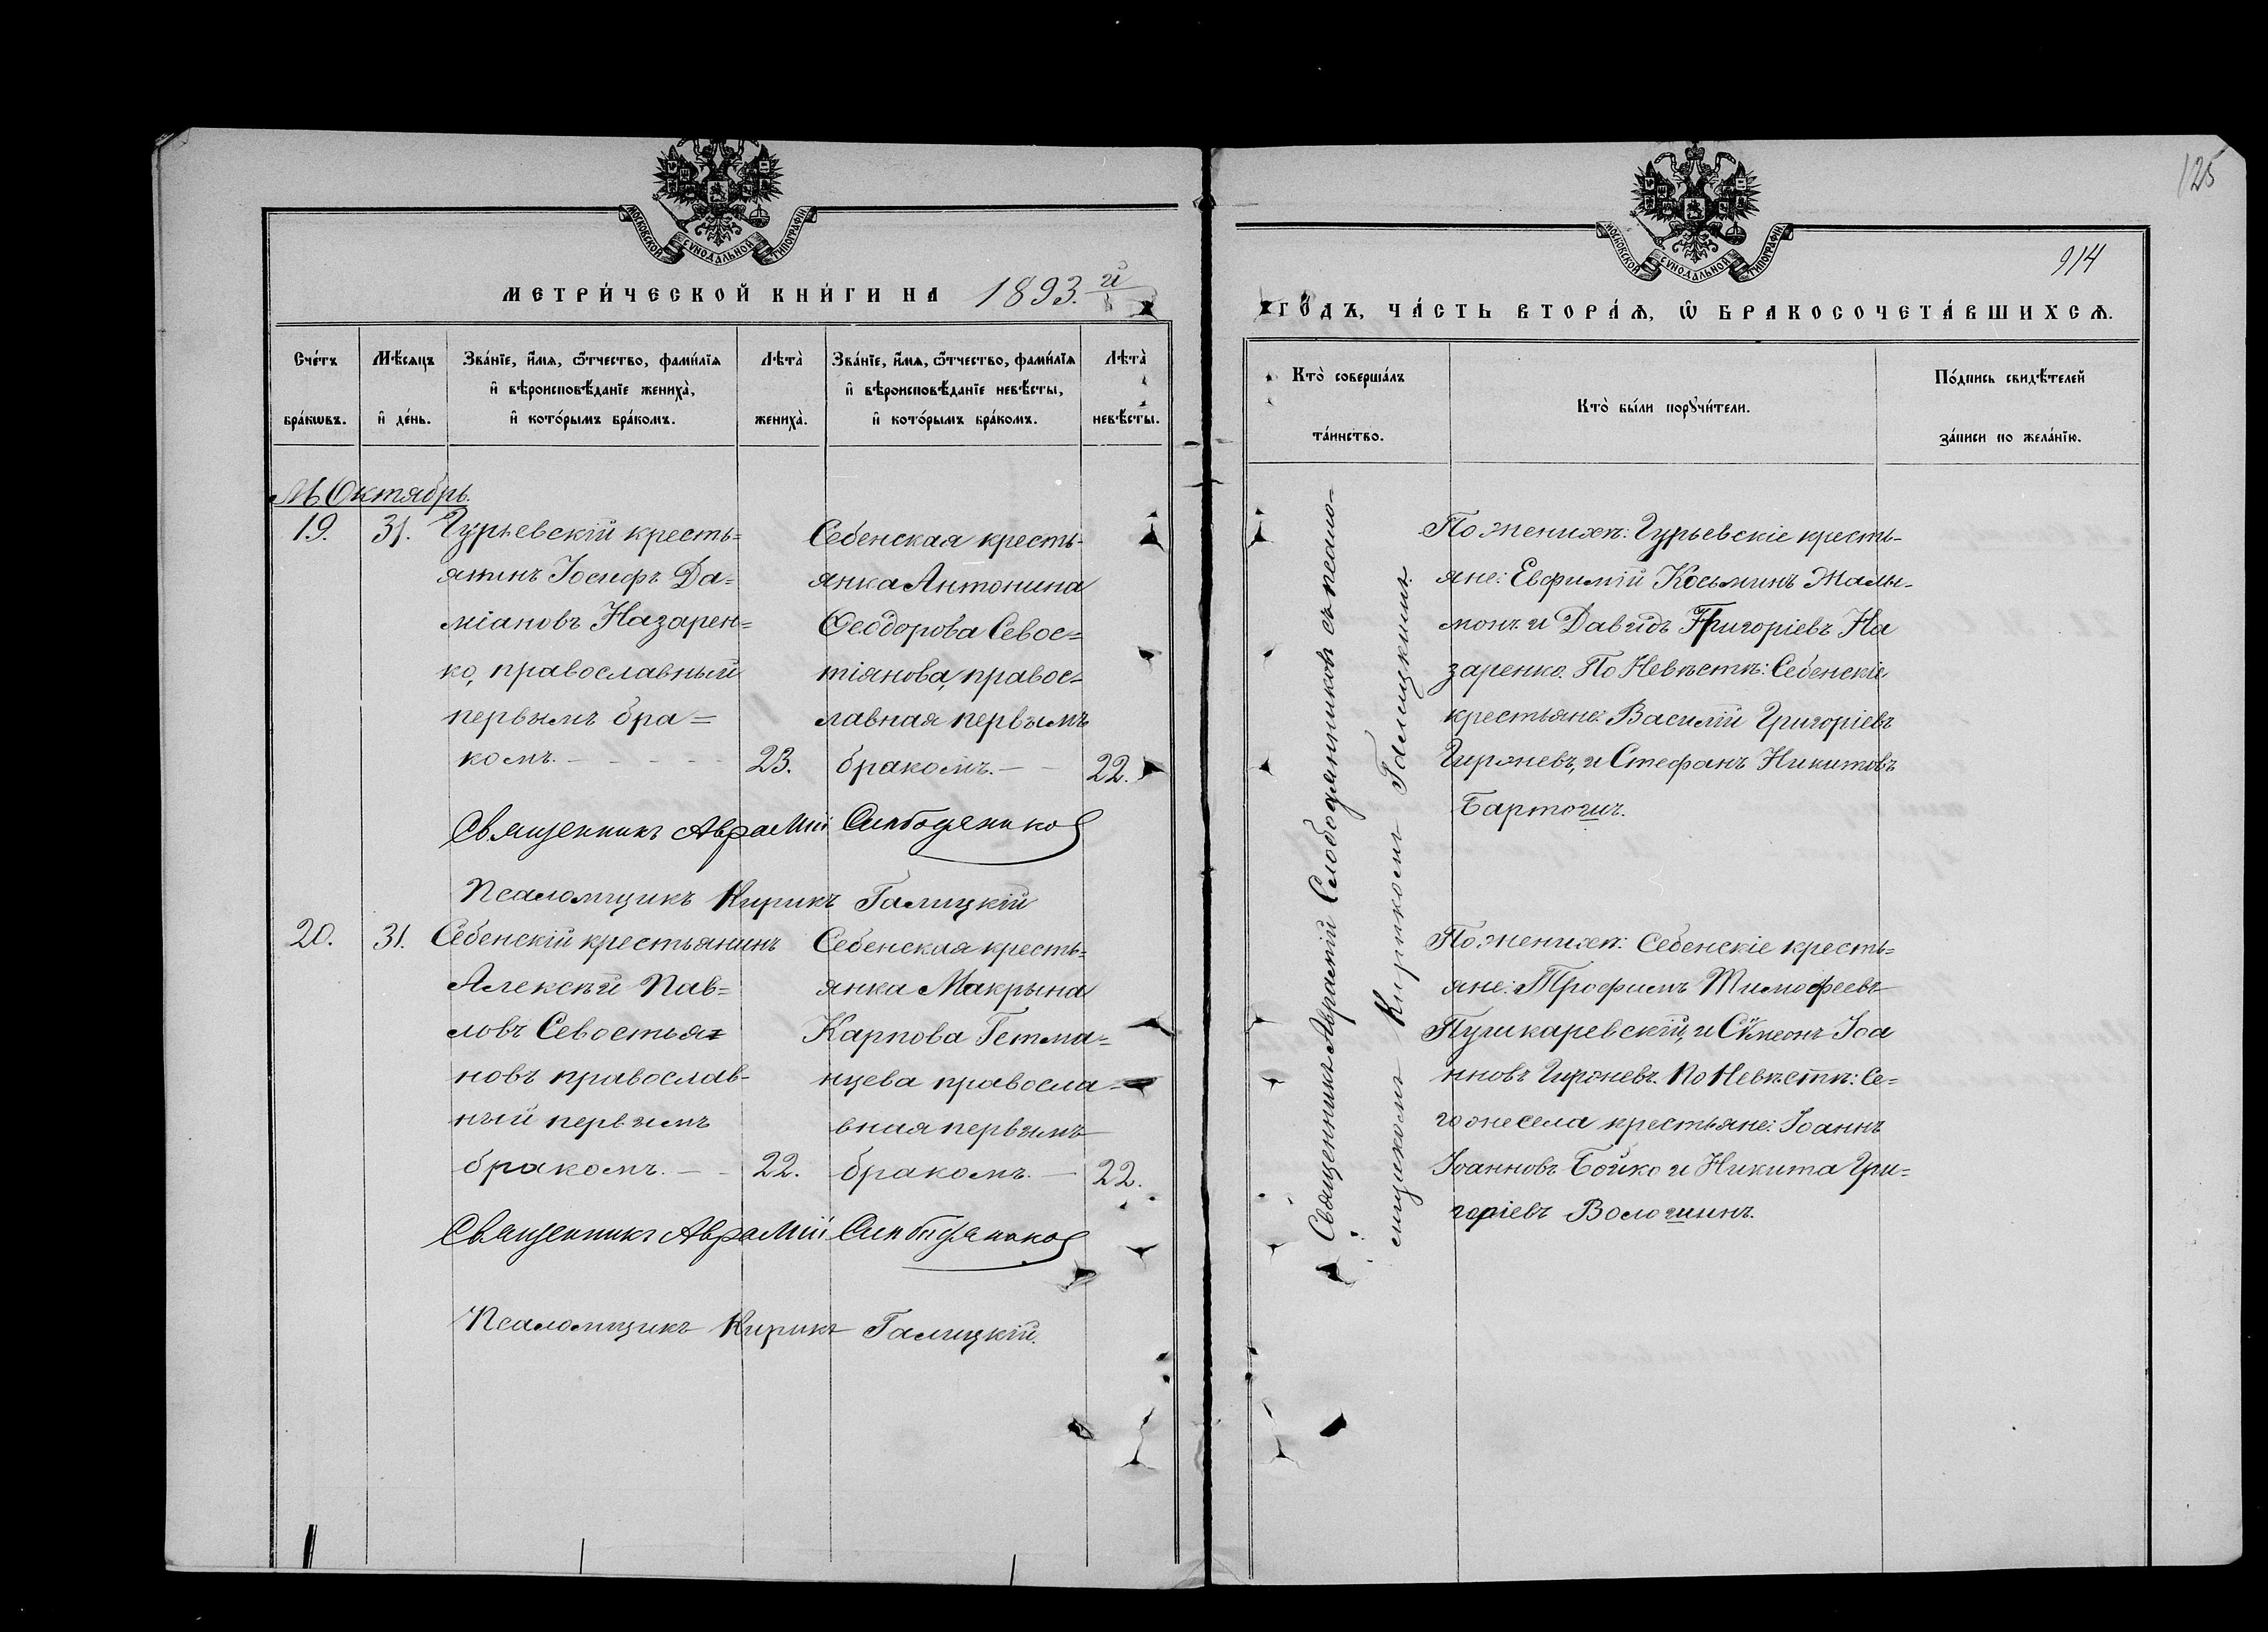 МОСКОВСКОЙ СѴНОДАЛЬНОЙ ТИПОГРАФІИ
МЕТРИ́ЧЕСКОЙ КНИ́ГИ НА 1893.й
Сче́тъ бра́кѡвъ.
Мѣ́сяцъ и҆ де́нь.
Зва́нїе, и҆́мѧ, ѻ҆́тчество, фами́лїѧ
и҆ вѣроисповѣ́данїе жениха̀,
и҆ кото́рымъ бра́комъ.
Лѣта̀ жениха̀.
Зва́нїе, и҆́мѧ, ѻ҆́тчество, фами́лїѧ
и҆ вѣроисповѣ́данїе невѣ́сты,
и҆ кото́рымъ бра́комъ.
Лѣта̀ невѣ́сты.
М Октябрь.
19.
31.
Гурьевскій кресть=
янинъ Іосифъ Да=
міановъ Назарен=
ко, православный
первымъ бра=
комъ.
23.
Себенская кресть-
янка Антонина
Ѳеодорова Севос=
тіянова, правос=
лавная первымъ
бракомъ.
22.
Священникъ Аврамій Слободяников
Псаломщикъ Кирикъ Галицкій
20.
31.
Себенскій крестьянинъ
Алексѣй Пав=
ловъ Севостья=
новъ православ-
ный первымъ
бракомъ.
22.
Себенская кресть=
янка Макрына
Карпова Гетма=
нцева правосла-
вная первымъ
бракомъ.
22.
Священникъ Аврамій Слободяников
Псаломщикъ Кирикъ Галицкій.
125
914
МОСКОВСКОЙ СѴНОДАЛЬНОЙ ТИПОГРАФІИ
ГО́ДЪ, ЧА́СТЬ ВТОРА́Ѧ, Ѡ҆ БРАКОСОЧЕТА́ВШИХСѦ.
Кто̀ соверша́лъ
та́инство.
Кто̀ бы́ли порꙋчи́тели.
По́дпись свидѣ́телей
за́писи по жела́нїю.
Священникъ Аврамій Слободянниковъ съ псало-
мщикомъ Кирикомъ Галицкимъ.
По женихѣ: Гурьевскіе кресть-
яне: Евфимій Косьминъ Малы-
монъ и Давидъ Григоріевъ На
заренко. По Невѣстѣ: Себенскіе
крестьяне: Василій Григоріевъ
Гиржевъ, и Стефанъ Никитовъ
Бартошъ.
По женихѣ: Себенскіе кресть=
яне: Трофимъ Тимофеевъ
Пушкаревскій, и Сѵмеонъ Іоа
нновъ Гиржевъ. По Невѣстѣ: Се=
го же села крестьяне: Іоаннъ
Іоанновъ Бойко и Никита Гри=
горіевъ Волошинъ.